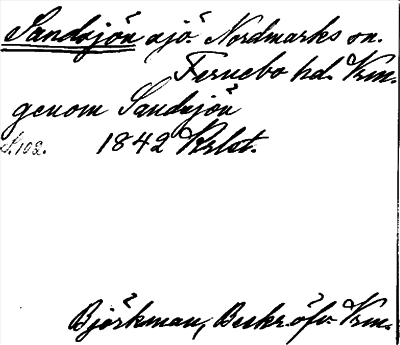 Sandsjön sjö. Nordmarks sn.
Fernebo hd. Vrm.
genom Sandsjön
S. 102. 1842 Krlst.
Björkman, Beskr. öfv. Vrm.